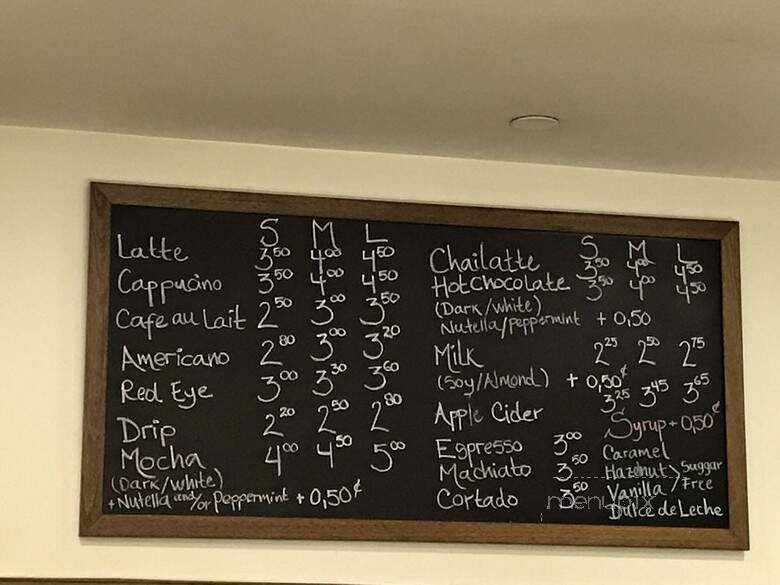 S M L
Latte 3.50 4.00 4.50
Cappucino 3.50 4.00 4.50
Cafe au Lait 2.50 3.00 3.50
Americano 2.80 3.00 3.20
Red Eye 3.00 3.30 3.60
Drip 2.20 2.50 2.80
Mocha 4.00 4.50 5.00
(Dark/white)
+ Nutella and/or Peppermint + 0,50¢
S M L
Chailatte 3.50 4.00 4.50
Hot Chocolate 3.50 4.00 4.50
(Dark/white)
Nutella/peppermint + 0,50
Milk 2.25 2.50 2.75
(Soy/Almond) + 0,50¢
Apple Cider 3.25 3.45 3.65
Espresso 3.00
Machiato 3.50
Cortado 3.50
Syrup + 0,50¢
Caramel
Hazelnut \ Suggar
Vanilla / Free
Dulce de Leche
menupix